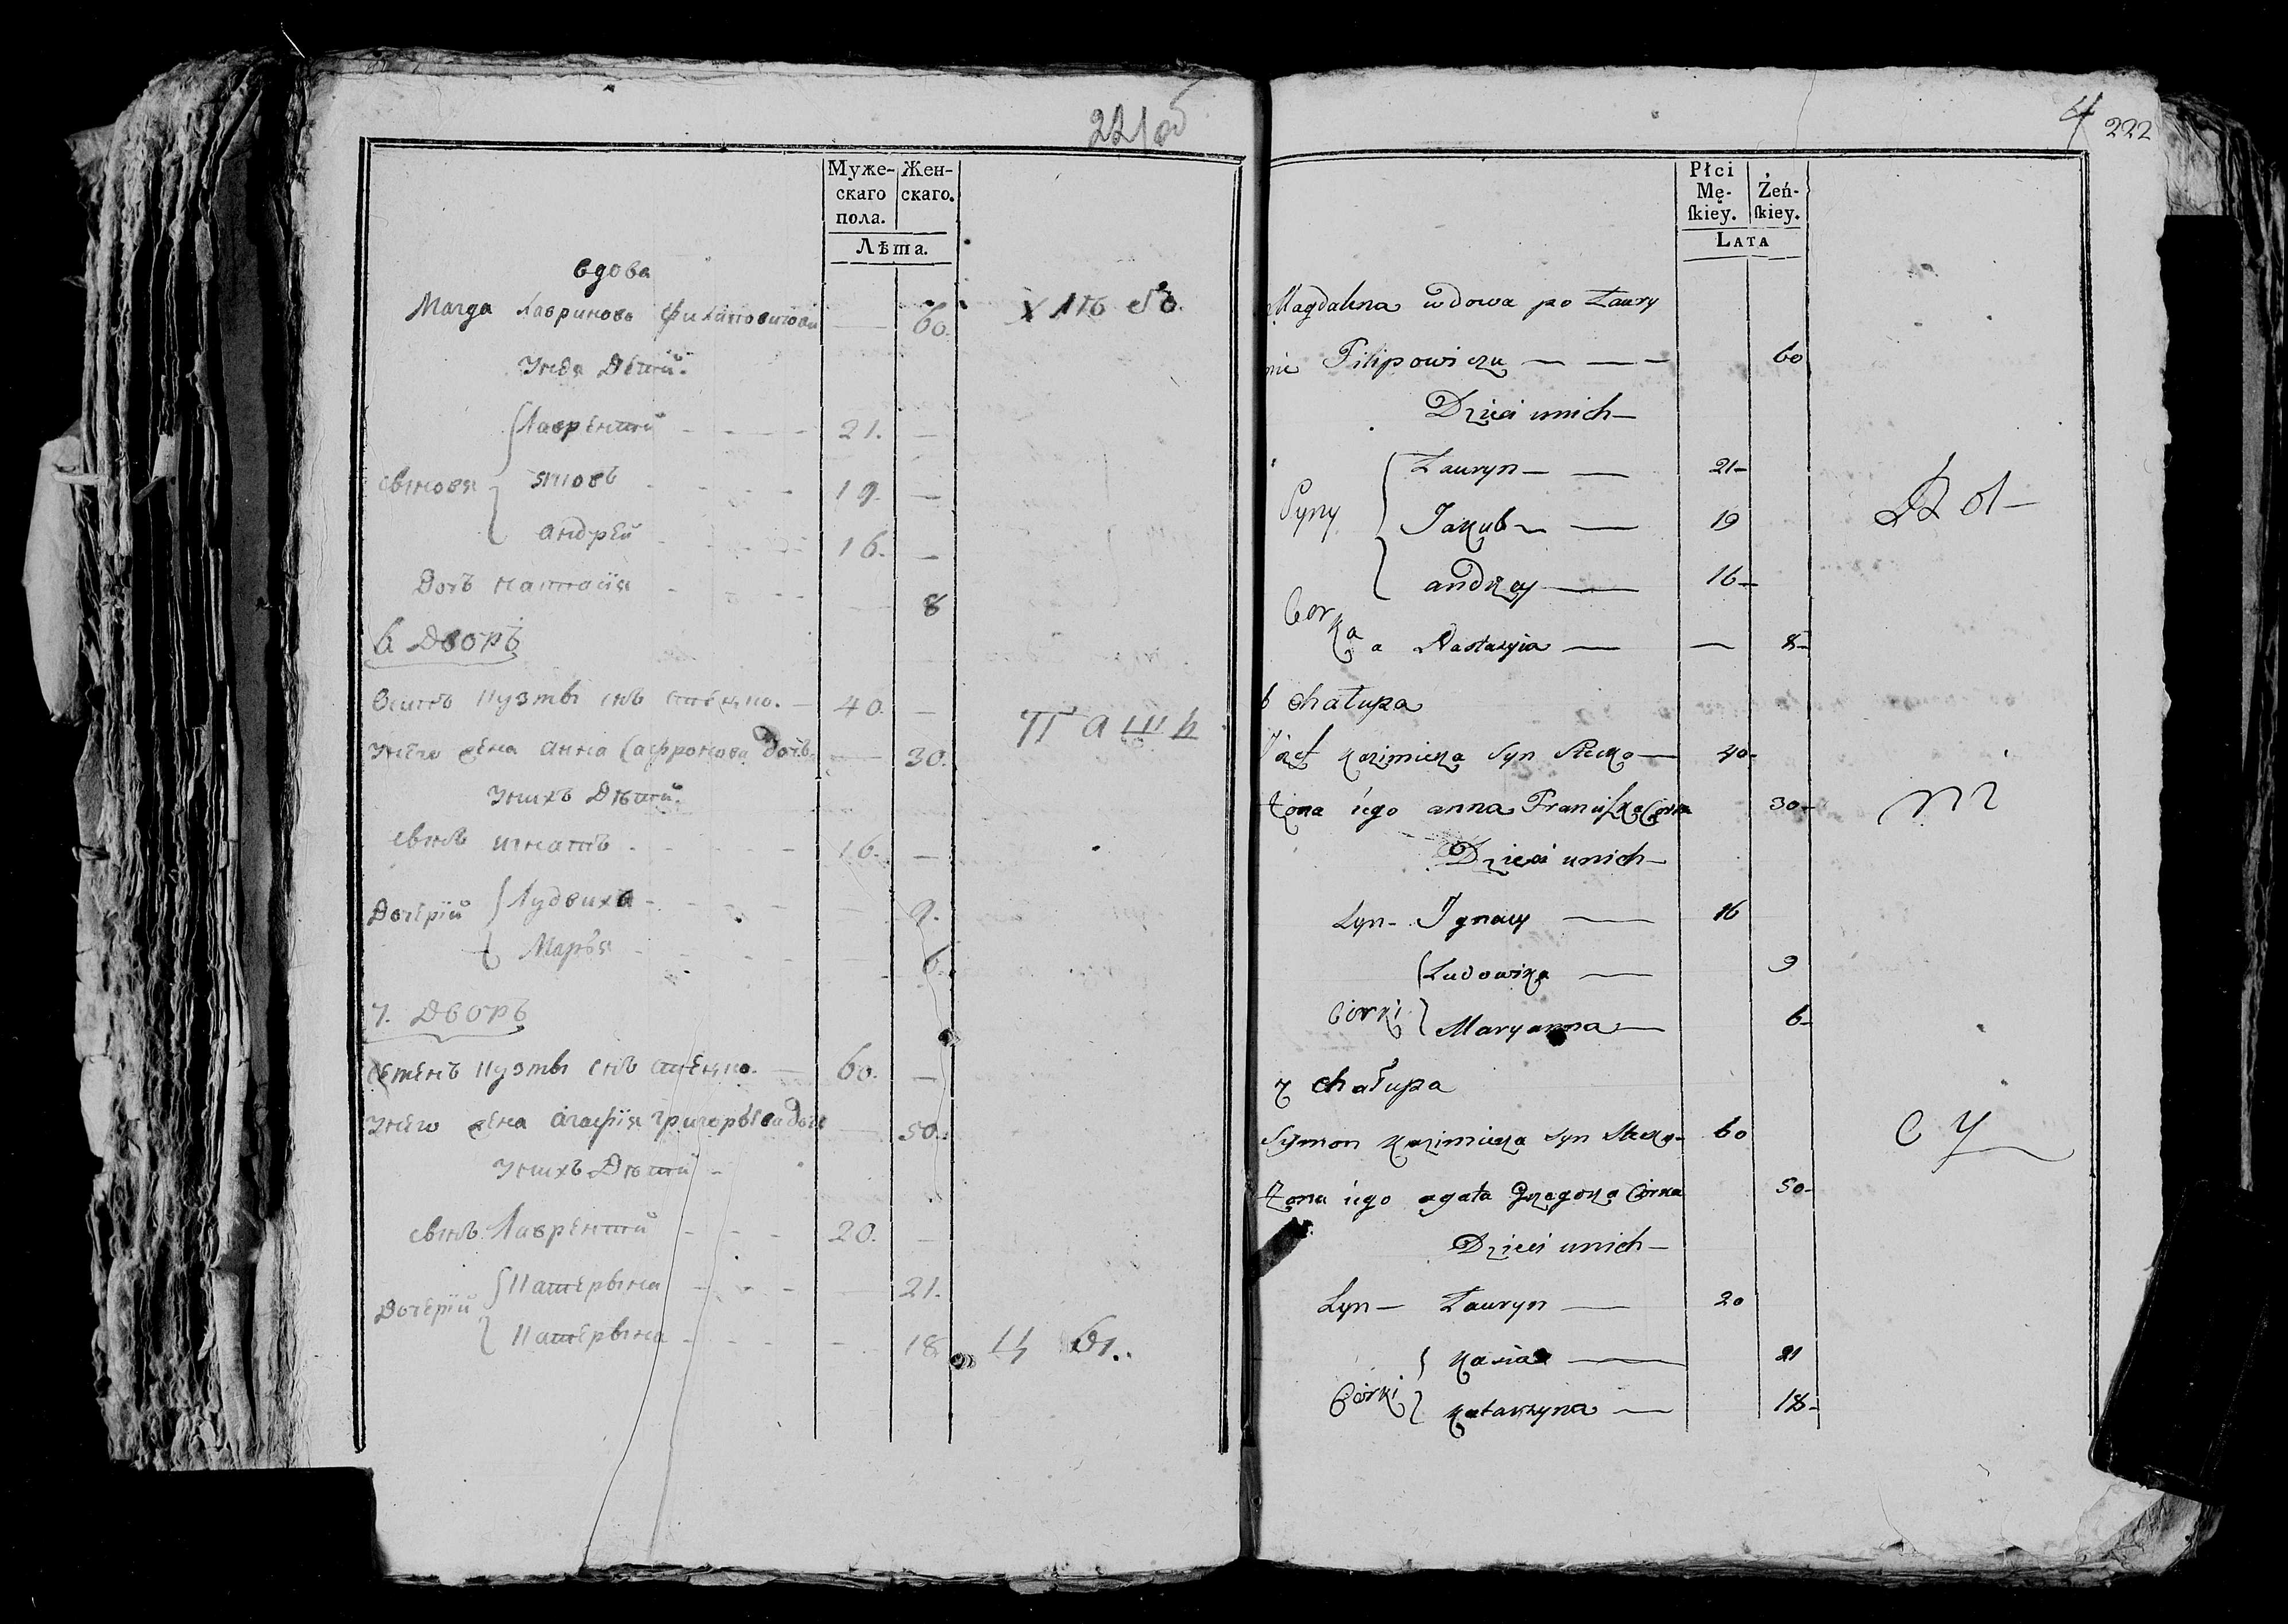 221об
Муже-
скаго
пола.
Жен-
скаго.
Лѣта.
вдова
Магда Лавринова Филиповичова — 60.
Х ІТЬ
Унея Дѣтѣй.
Лаврентій - - - - 21. —
сынова Яковъ - - - - 19. —
Андрей - - - - 16. —
Дочь Настасія - - - - — 8
6. Дворъ
Осипъ Кузмы снъ Стецко. — 40. —
Унего жена Анна Сафронова дочь. — 30.
П а ш к
Унихъ Дѣтѣй.
сынъ Игнатъ - - - - 16. —
Дочерій Лудвиха - - - - — 9.
Марья - - - - — 6.
7. Дворъ
Семенъ Кузмы снъ Стецко. — 60. —
Унего жена Агафія Григорьева дочь — 50.
Унихъ Дѣтѣй -
сынъ Лаврентій - - - 20. —
Дочерій Катерына - - - — 21.
Катерына - - - - — 18.
Ц ы.
222
Płci
Mę-
ſkiey.
Żeń-
ſkiey.
LATA
Magdalena wdowa po Ławry
nie Filipowiczu — — — 60
Dzieci unich —
Ławryn — — 21 —
Syny Jakub — — 19
andrzey — 16 —
Corka a Nastazyia — — 8 —
6 chałupa
Józef Kazimierza Syn Stecko — 40 —
Żona iego anna Franciszka Córka 30 —
Dzieci unich —
Syn — Ignacy — 16
Ludowika — 9
Córki Maryanna — 6 —
7 chałupa
Szymon Kazimierza Syn Stecko — 60
С У
Żona iego agata Grzegorza Córka 50 —
Dzieci unich —
Syn — Ławryn — 20
Kasia — 21
Córki Katarzyna — 18 —